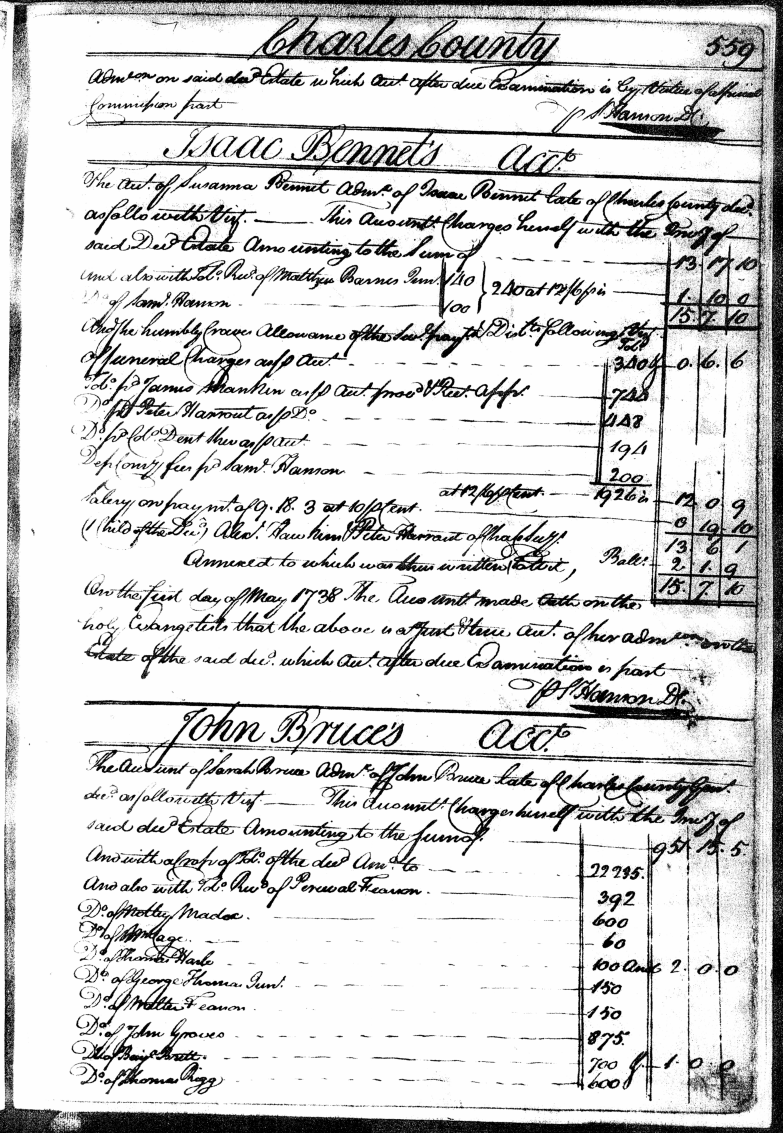 Charles County 559
Adm.on on said dec.d Estate which Acc.t after due Examination is by Virtue of a Special
Commission past
p S Hanson D.C.
Isaac Bennet's Acc.t
The Acc.t of Susanna Bennet Adm.x of Isaac Bennet late of Charles County dec.d
as followith Viz.t This Accountt Charges herself with the Inv.y of
said Dec.d Estate Amounting to the Sum of 13. 17. 10
and also with Tob.o Rec.d of Matthew Barnes Jun.r 140
D.o of Sam.l Hanson 100 } 240 at 12/6 p is 1. 10. 0
15. 7. 10
And she humbly Craves Allowance of the Sev.l paym.ts & Disb.ts following Viz.t
Tob.o
of Funeral Charges as p Acc.t 340 & 0. 6. 6
Tob.o p.d James Mankin as p Acc.t prov.d & Rec.t App.r 744
D.o p.d Peter Harrant as p D.o 448
D.o p.d Col.o Dent then as p Acc.t 194
Dep Com.ry fees p.d Sam.l Hanson 200
at 12/6 p Cent 1926 is 12 0 9
Salery on paym.t of 9. 18. 3 at 10 p Cent 0 19. 10
13. 6. 1
(1 Child of the Dec.d) Alex.r Hawkins & Peter Harrant of Chas Suf.
Ball.a 2. 1. 9
Annexed to which was thus written to wit,
15. 7. 10
On the first day of May 1738 The Accountt made Oath on the
holy Evangelists that the above is a Just & true Acc.t of her adm.on on the
Estate of the said dec.d which Acc.t after due Examination is past
p S Hanson D.C.
John Bruce's Acc.t
The Account of Sarah Bruce Adm.x of John Bruce late of Charles County Gent.
dec.d as followith Viz.t This Accountt Charges herself with the Inv.y of
said dec.d Estate Amounting to the Sum of 951. 15. 5.
And with a Crop of Tob.o of the dec.d Am.t to 22235.
And also with Tob.o Rec.d of Percival Fearson. 392
D.o of Notley Madox. 600
D.o of 60
D.o of Thomas Harle 100 And 2. 0. 0
D.o of George Thomas Jun.r 150
D.o of Walter Fearson 150
D.o of John Groves 875.
D.o of Benj.a 700 & 1. 0. 0
D.o of Thomas Rigg 600